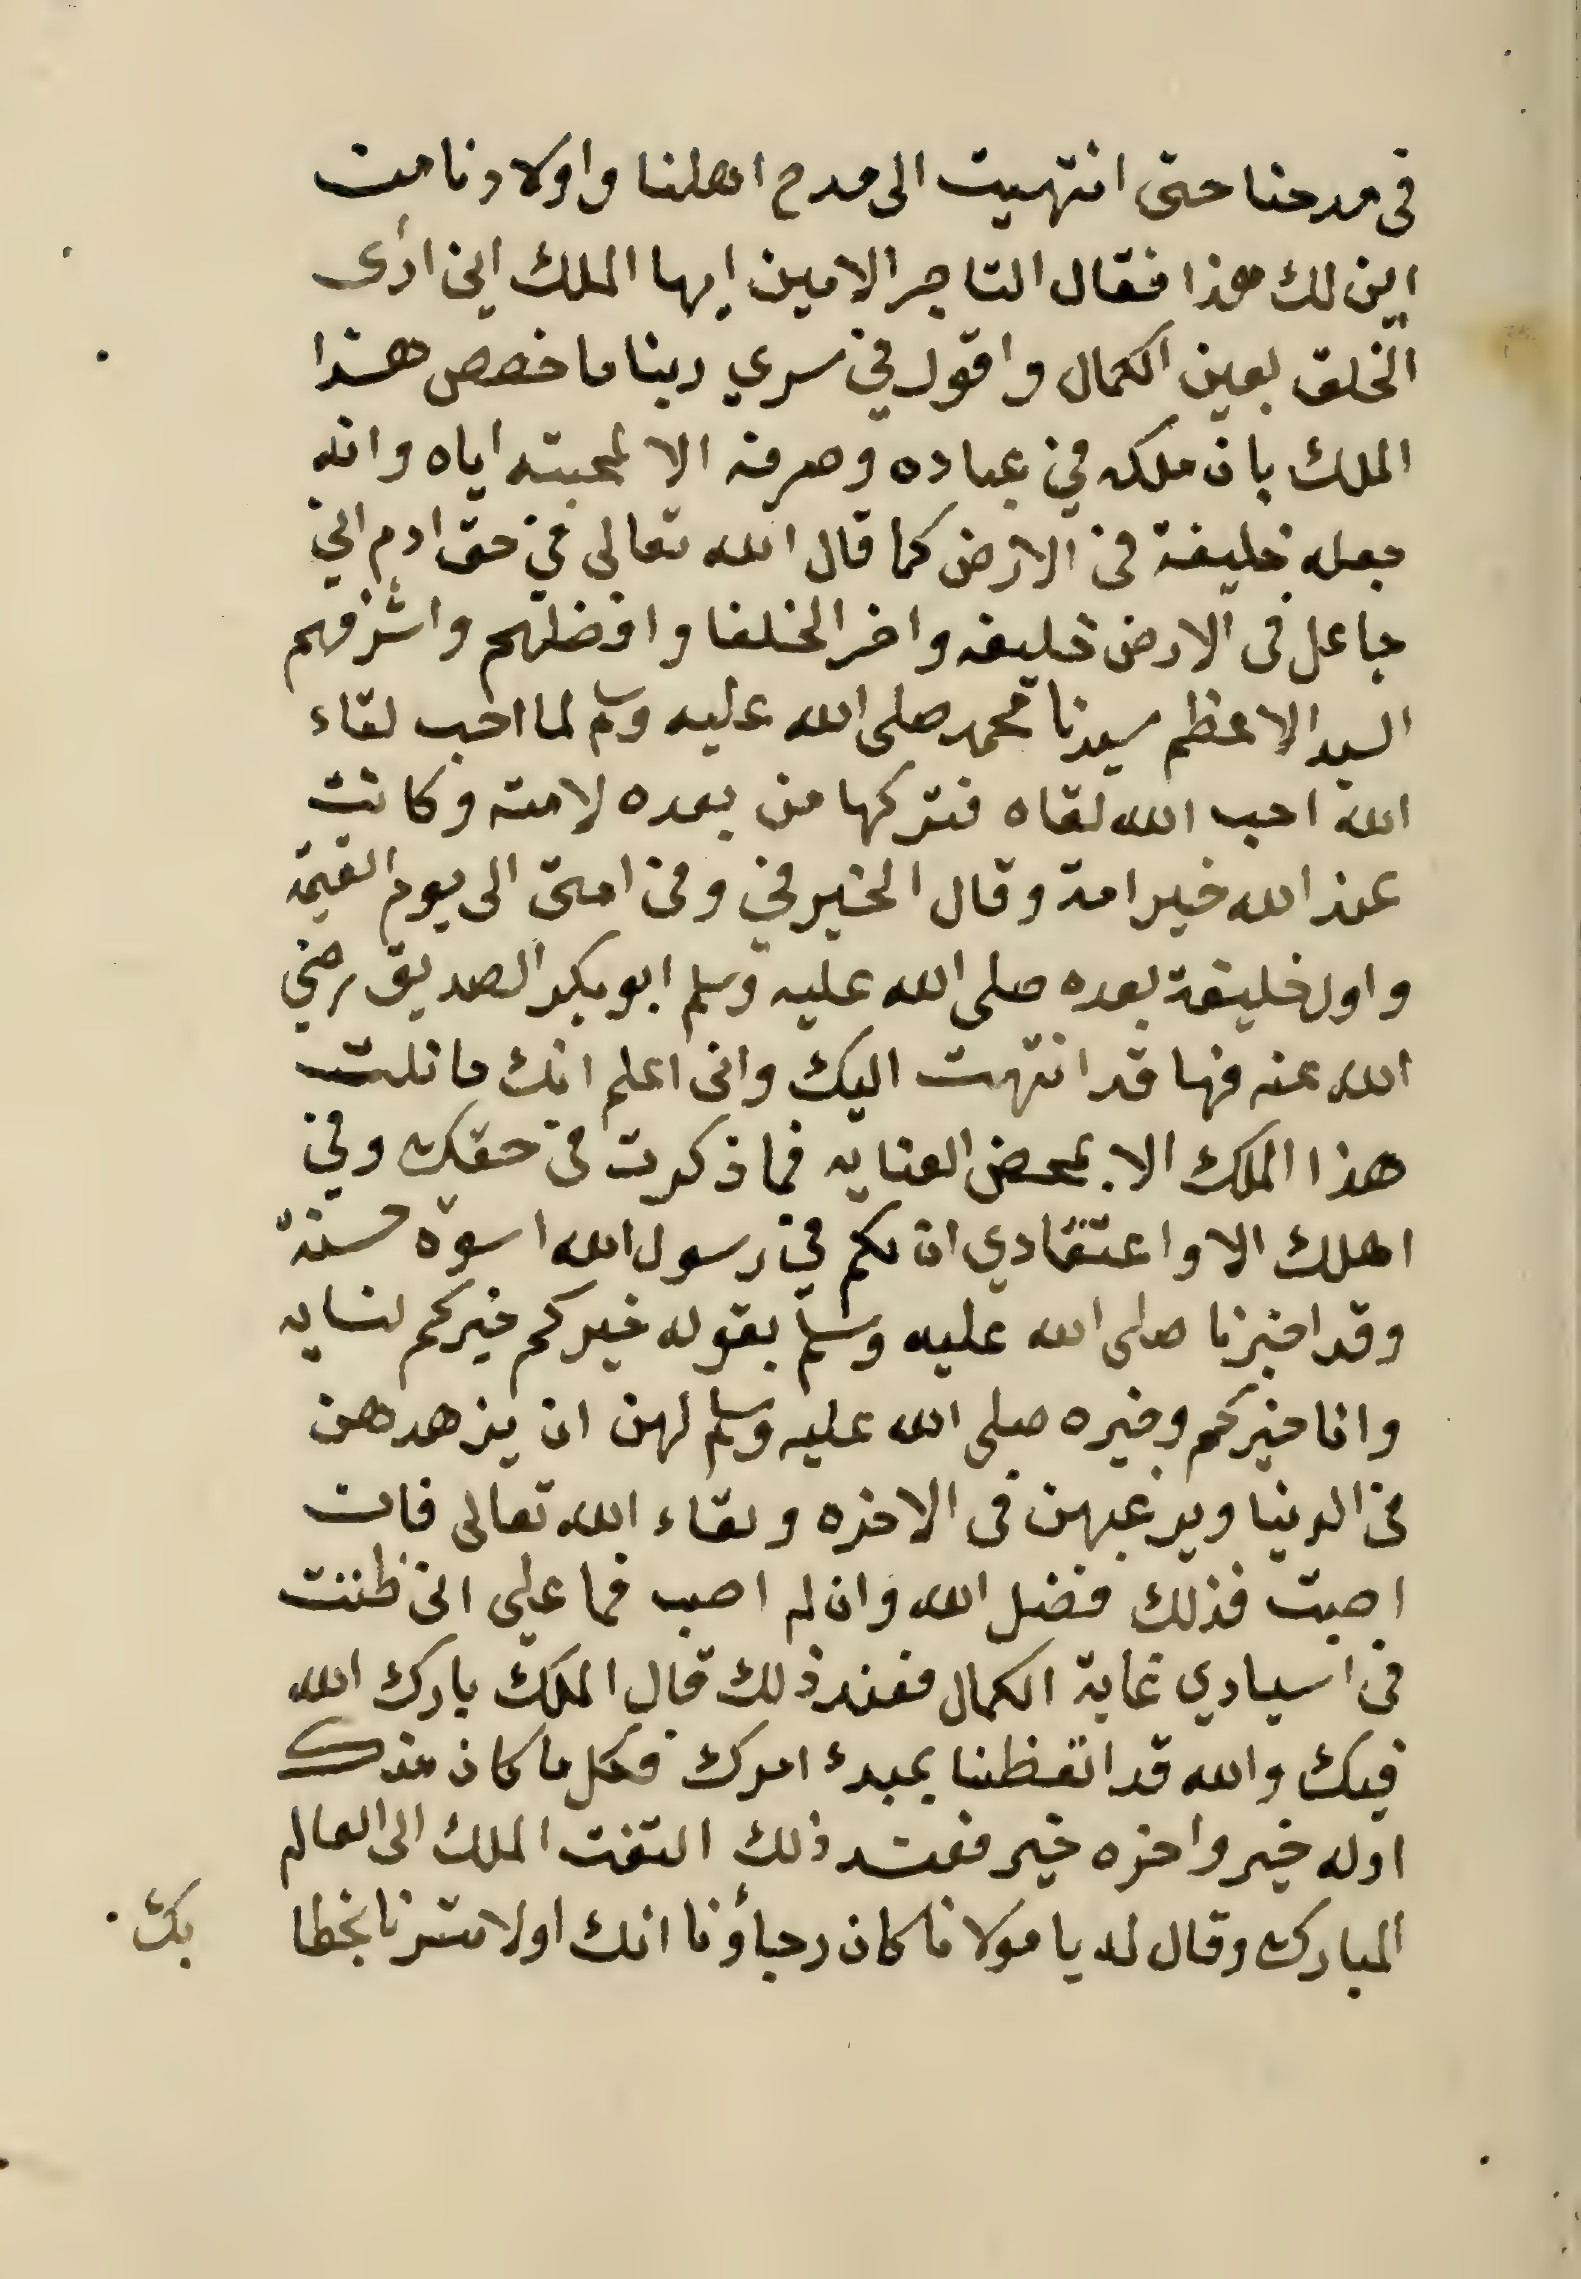 فى مدحنا حتى انتهيت الى مدح اهلنا واولادنا من
اين لك هذا فقال التاجر الامين ايها الملك انى ارى
الخلق بعين الكمال واقول فى سري ربنا ما خصص هذا
الملك بان ملكه في عباده وصرفه الا لمحبته اياه وانه
جعله خليفة فى الارض كما قال الله تعالى في حق ادم اني
جاعل فى الارض خليفه واخر الخلفا وافضلهم واشرفهم
السيد الاعظم سيدنا محمد صلى الله عليه وسلم لما احب لقاء
الله احب الله لقاه فتركها من بعده لامته وكانت
عند الله خير امة وقال الخير في وفى امتى الى يوم القيمة
واول خليفة بعده صلى الله عليه وسلم ابو بكر الصديق رضي
الله عنه فها قد انتهت اليك وانى اعلم انك ما نلت
هذا الملك الا بمحض العنايه فما ذكرت فى حقك وفي
اهلك الا واعتقادي ان لكم في رسول الله اسوة حسنة
وقد اخبرنا صلى الله عليه وسلم بقوله خيركم خيركم لنسايه
وانا خيركم وخيره صلى الله عليه وسلم لهن ان يزهدهن
فى الدنيا ويرغبهن فى الاخره ولقاء الله تعالى فان
اصبت فذلك فضل الله وان لم اصب فما علي انى ظننت
فى اسيادي غاية الكمال فعند ذلك قال الملك بارك الله
فيك والله قد اتعظنا بمبدء امرك فكل ما كان منك
اوله خير واخره خير فعند ذلك التفت الملك الى العالم
المبارك وقال له يا مولانا كان رجاؤنا انك اولا تسرنا بخطا
بك